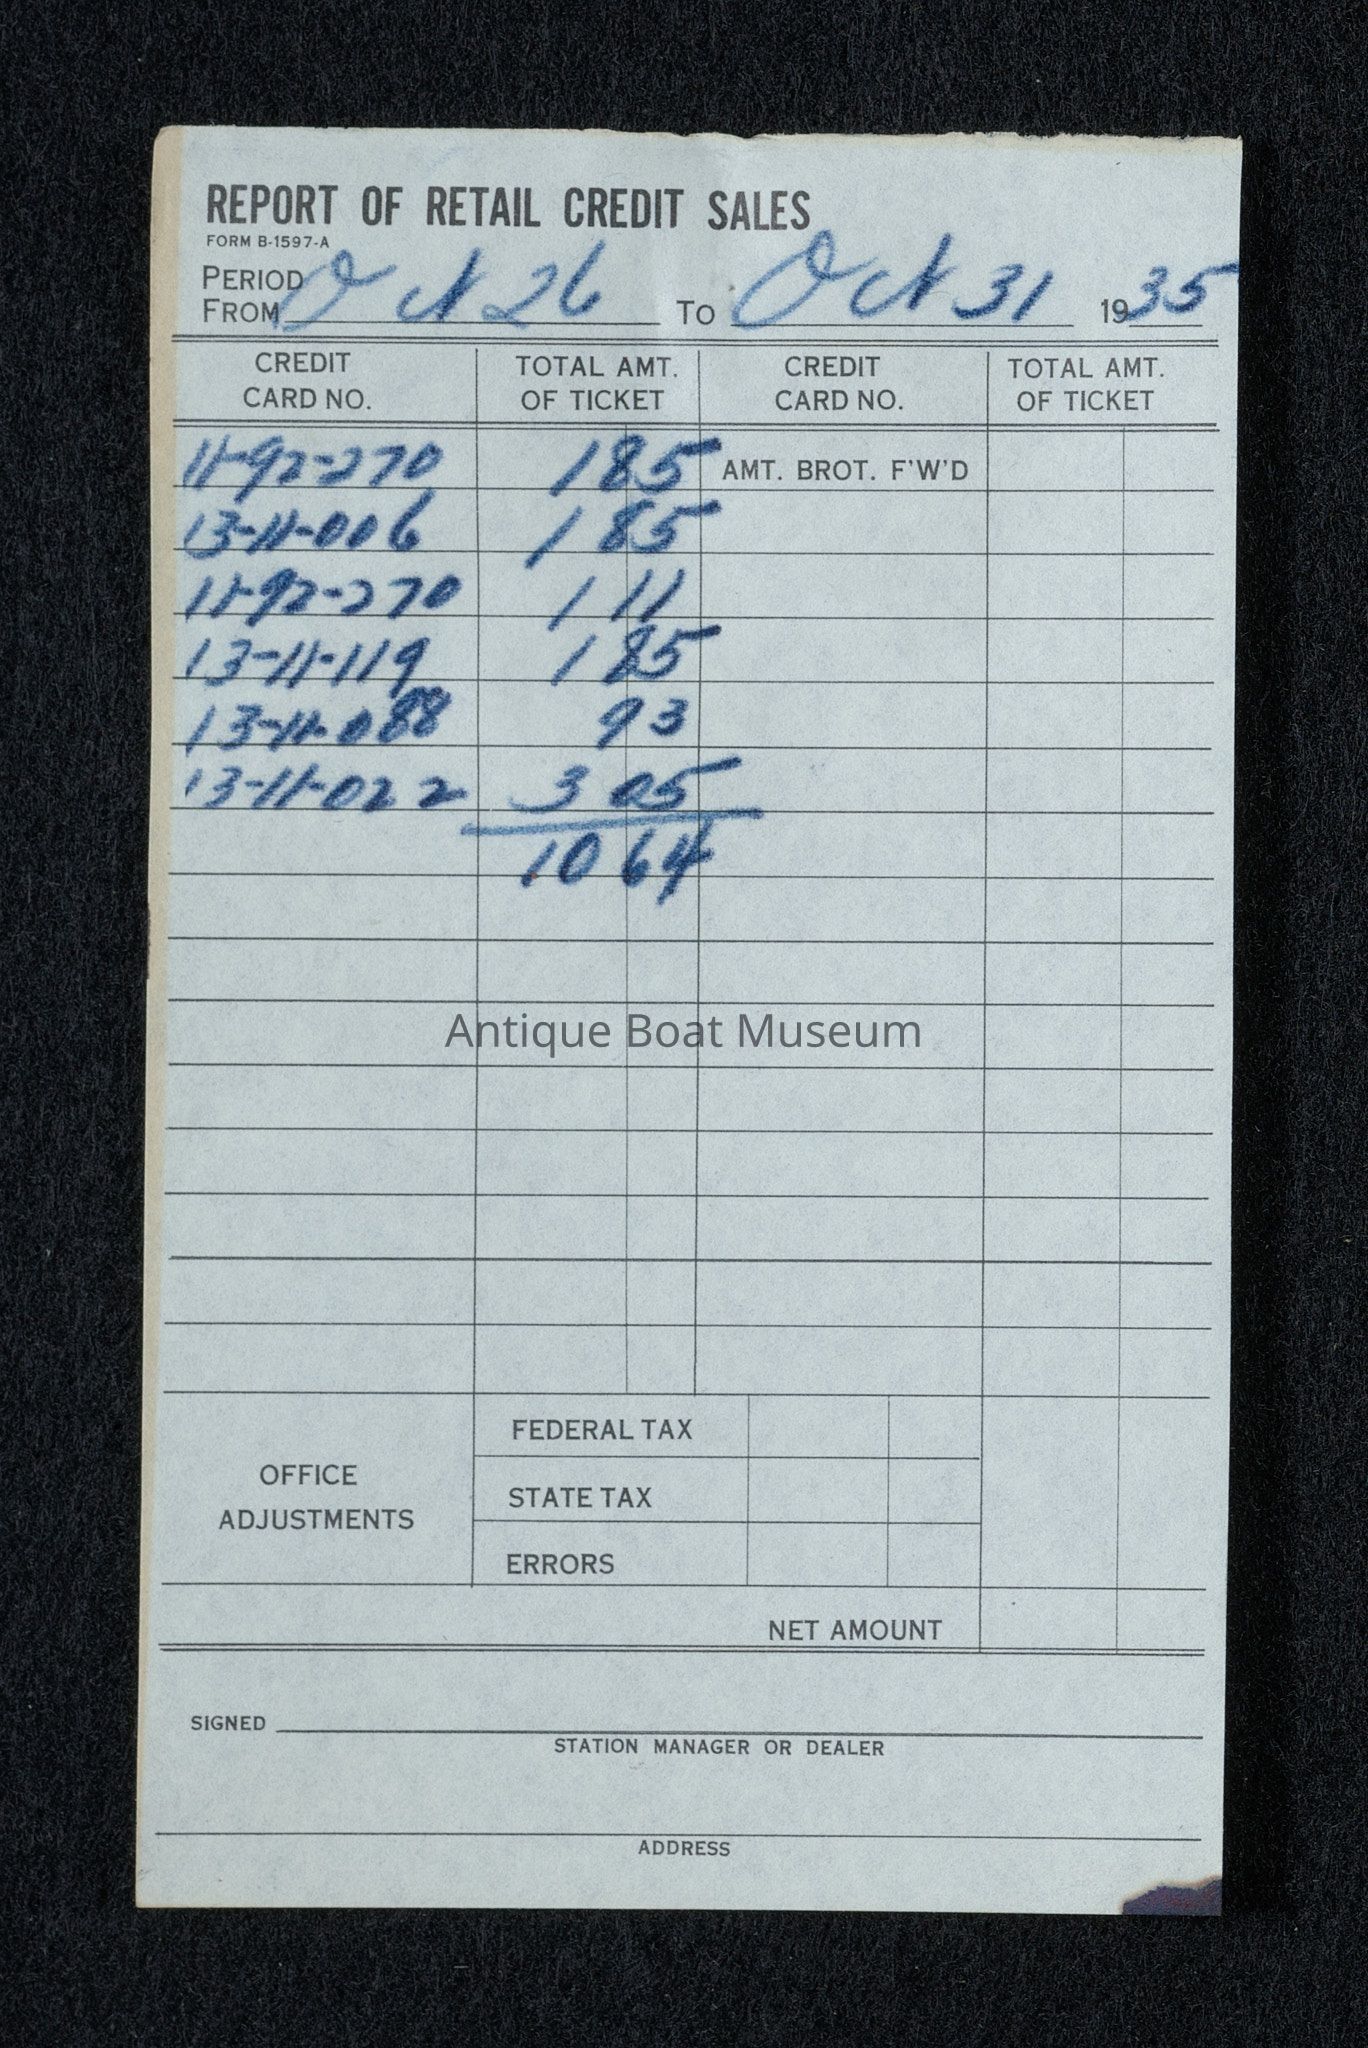 REPORT OF RETAIL CREDIT SALES
FORM B-1597-A
PERIOD
FROM Oct 26 To Oct 31 1935
CREDIT CARD NO. TOTAL AMT. OF TICKET CREDIT CARD NO. TOTAL AMT. OF TICKET
11-92-270 1 85 AMT. BROT. F'W'D
13-11-006 1 85
11-92-270 1 11
13-11-119 1 85
13-11-088 93
13-11-022 3 05
10 64
Antique Boat Museum
OFFICE ADJUSTMENTS
FEDERAL TAX
STATE TAX
ERRORS
NET AMOUNT
SIGNED
STATION MANAGER OR DEALER
ADDRESS